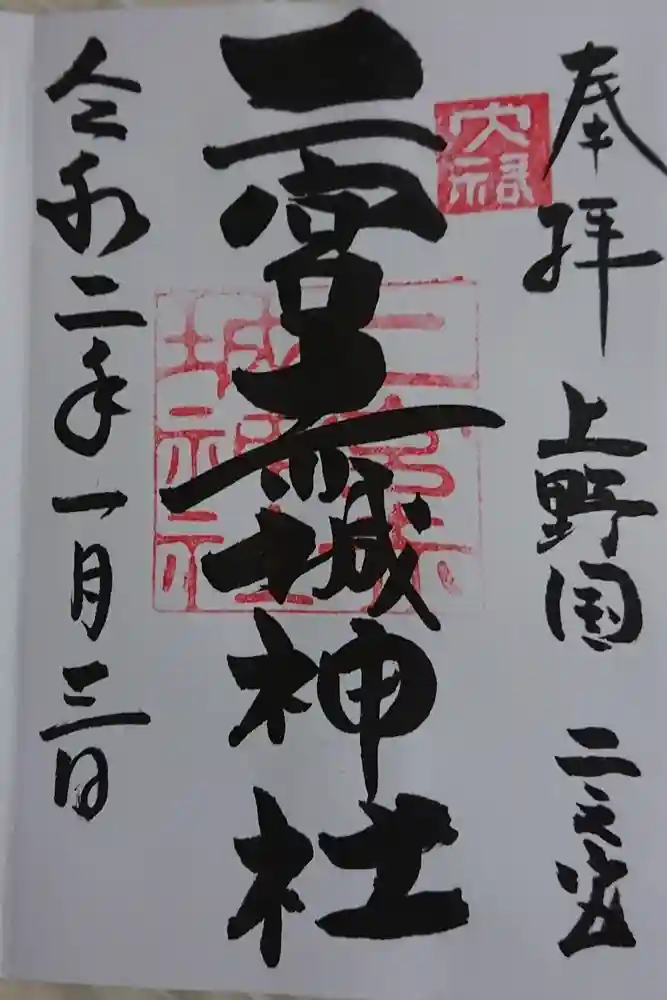 奉拝 上野国 二之宮
二宮赤城神社
二宮赤
城神社
令和二年一月三日